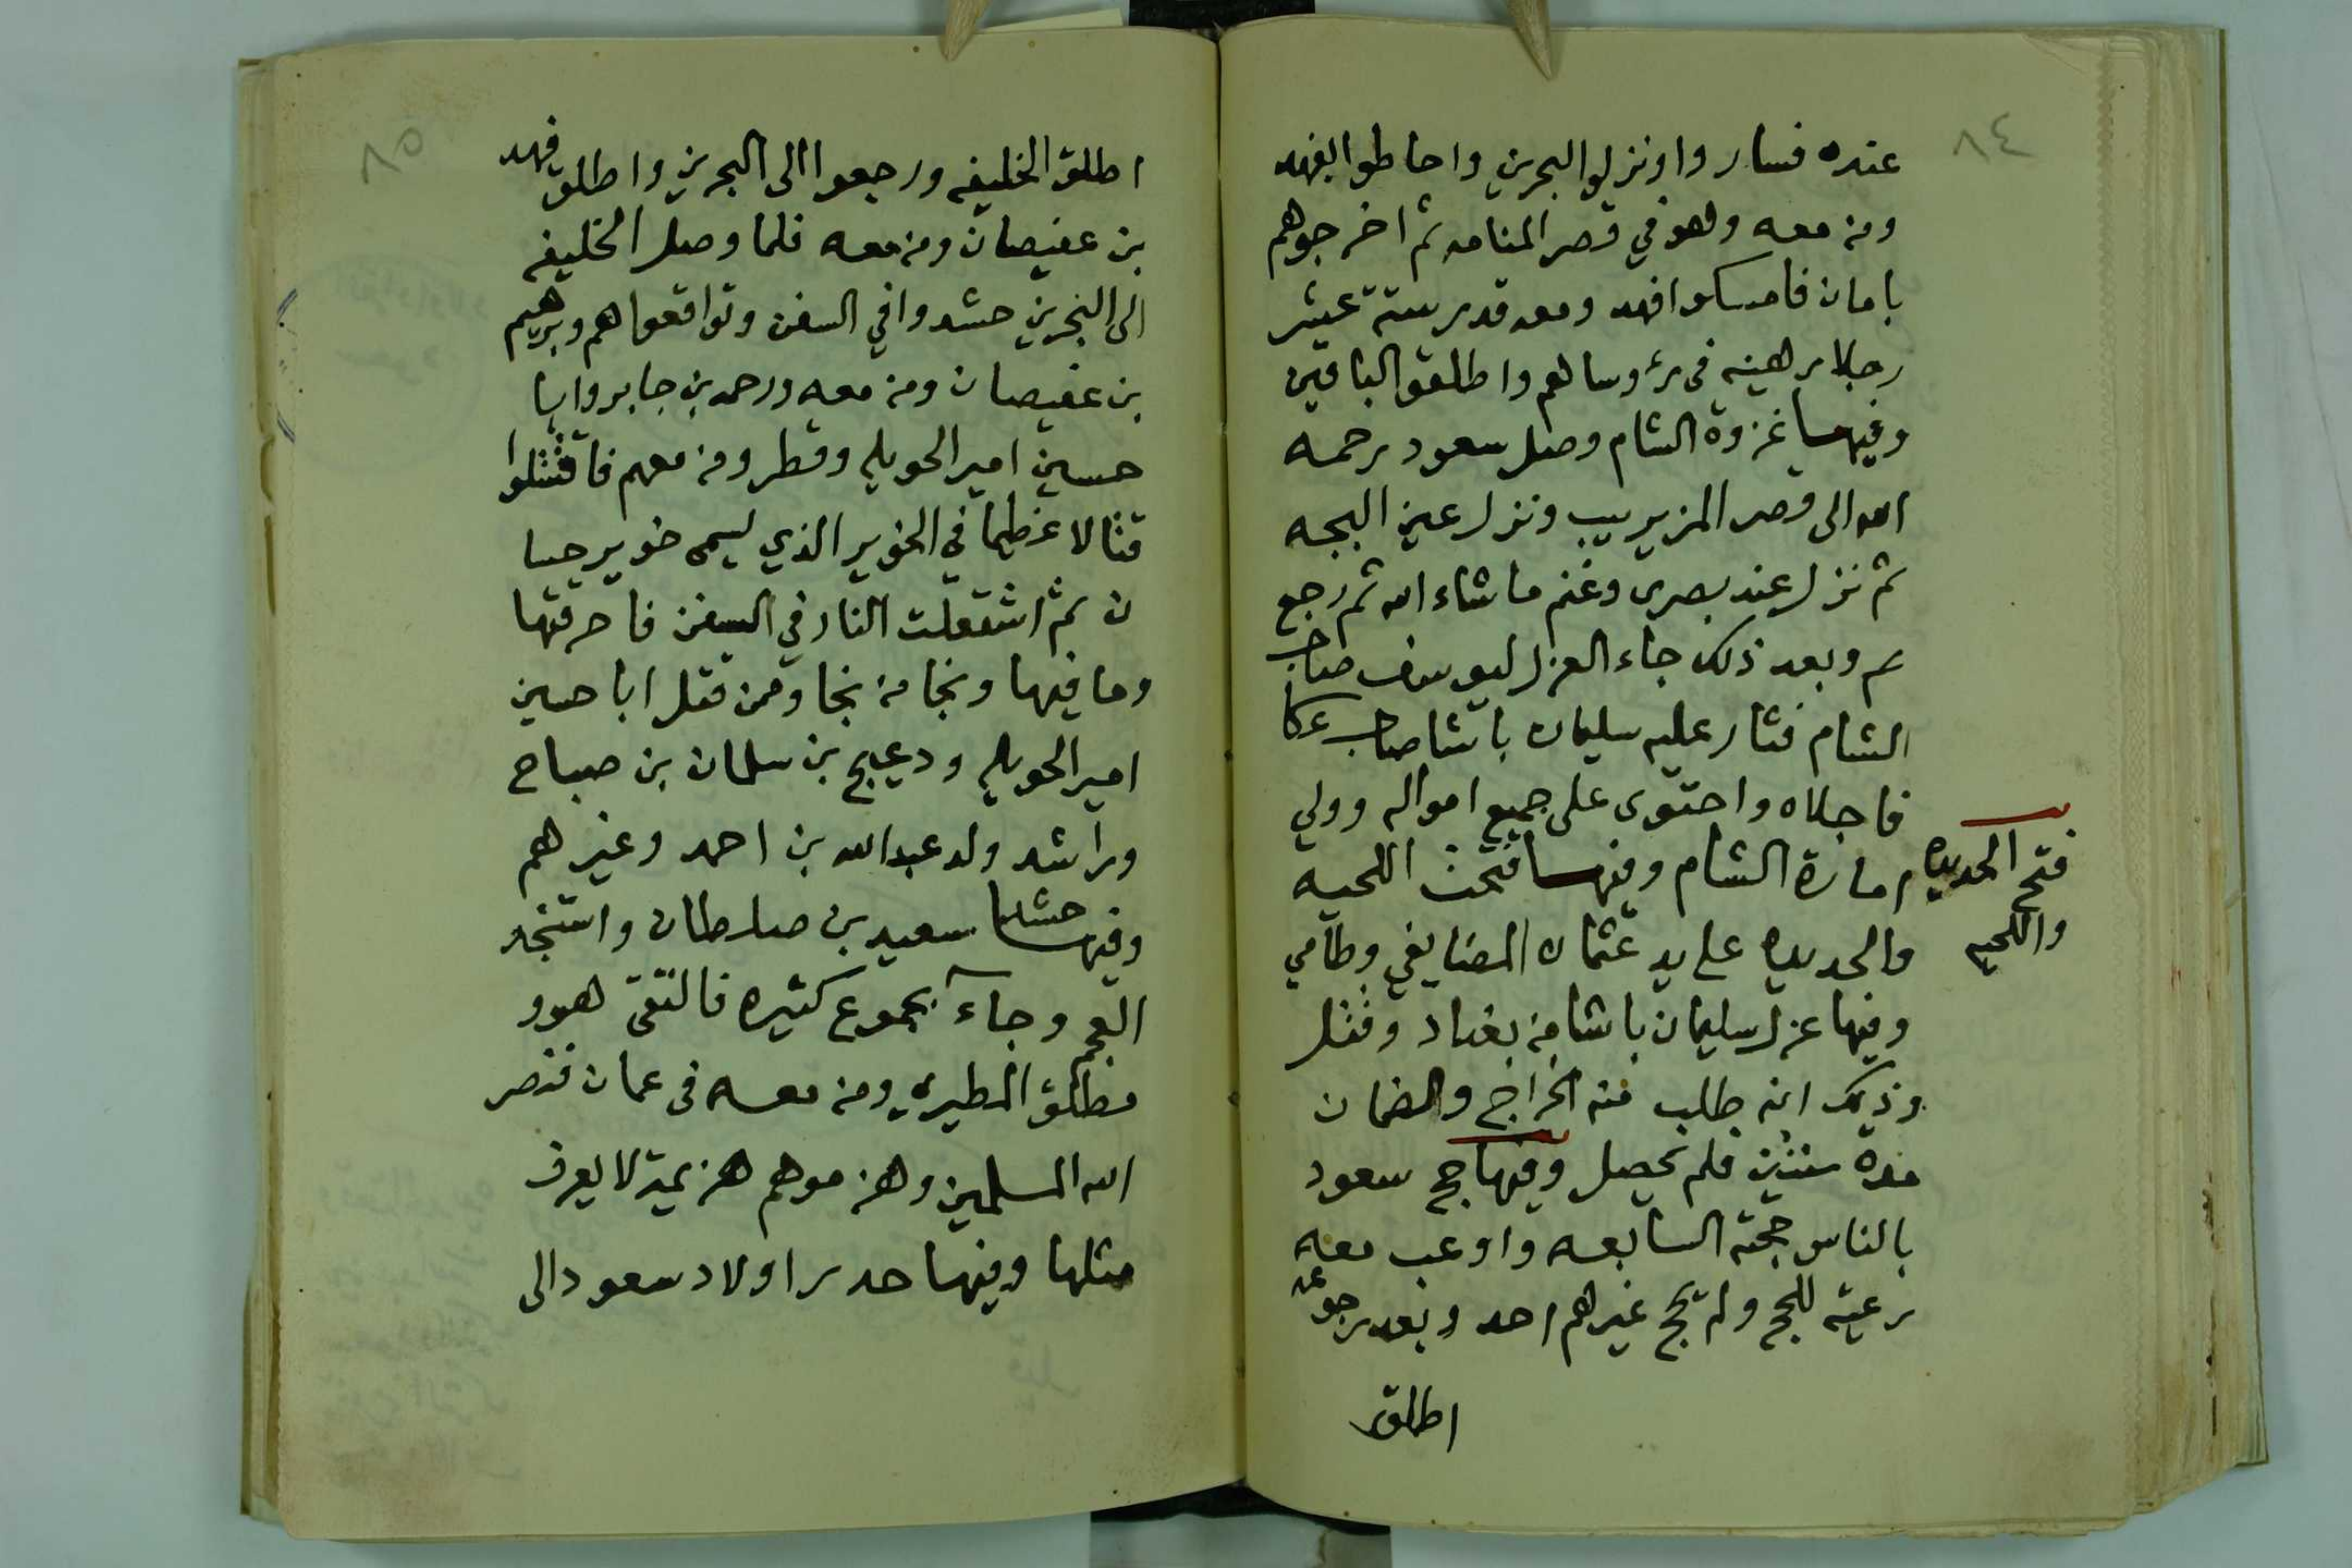 ٨٤
عنده فساروا ونزلوا البحرين واحاطوا بفهد
ومن معه وهو في قصر المنامه ثم اخرجوهم
بامان فامسكوا فهد ومعه قدر ستة عشر
رجلا رهينه في رؤوسا لهم واطلقوا الباقين
وفيها غزوة الشام وصل سعود رحمه
الله الى قصر المزيريب ونزل عين البجه
ثم نزل عند بصرى وغنم ما شاء الله ثم رجع
وبعد ذلك جاء العزل ليوسف صاحب
الشام فثار عليه سليمان باشا صاحب عكا
فاجلاه واحتوى على جميع امواله وولي
امارة الشام وفيها فتحت اللحيه
والحديده على يد عثمان المضايفي وطامي
وفيها عزل سليمان باشا من بغداد وقتل
وذلك انه طلب منه الخراج والضمان
مدة سنتين فلم يحصل وفيها حج سعود
بالناس حجته السابعه واوعب معه
رعيته للحج ولم يحج غيرهم احد وبعد رجوعه
اطلق
فتح الحديده
واللحيه
٨٥
اطلق الخليفه ورجعوا الى البحرين واطلق فهد
بن عفيصان ومن معه فلما وصل الخليفه
الى البحرين حشدوا في السفن وتواقعوا هم وبرهيم
بن عفيصان ومن معه ورحمه بن جابر وابا
حسين امير الحويله وقطر ومن معهم فاقتتلوا
قتالا عظيما في الخوير الذي ليسمى خوير حسا
ن ثم اشتعلت النار في السفن فاحرقتها
وما فيها ونجا من نجا وممن قتل ابا حسين
امير الحويله ودعيج بن سلمان بن صباح
وراشد ولد عبدالله بن احمد وغيرهم
وفيها حشد سعيد بن صلطان واستنجد
العجم وجاء بجموع كثيره فالتقى هوو
مطلق المطيري ومن معه في عمان فنصر
الله المسلمين وهزموهم هزيمة لا يعرف
مثلها وفيها حدر اولاد سعود الى